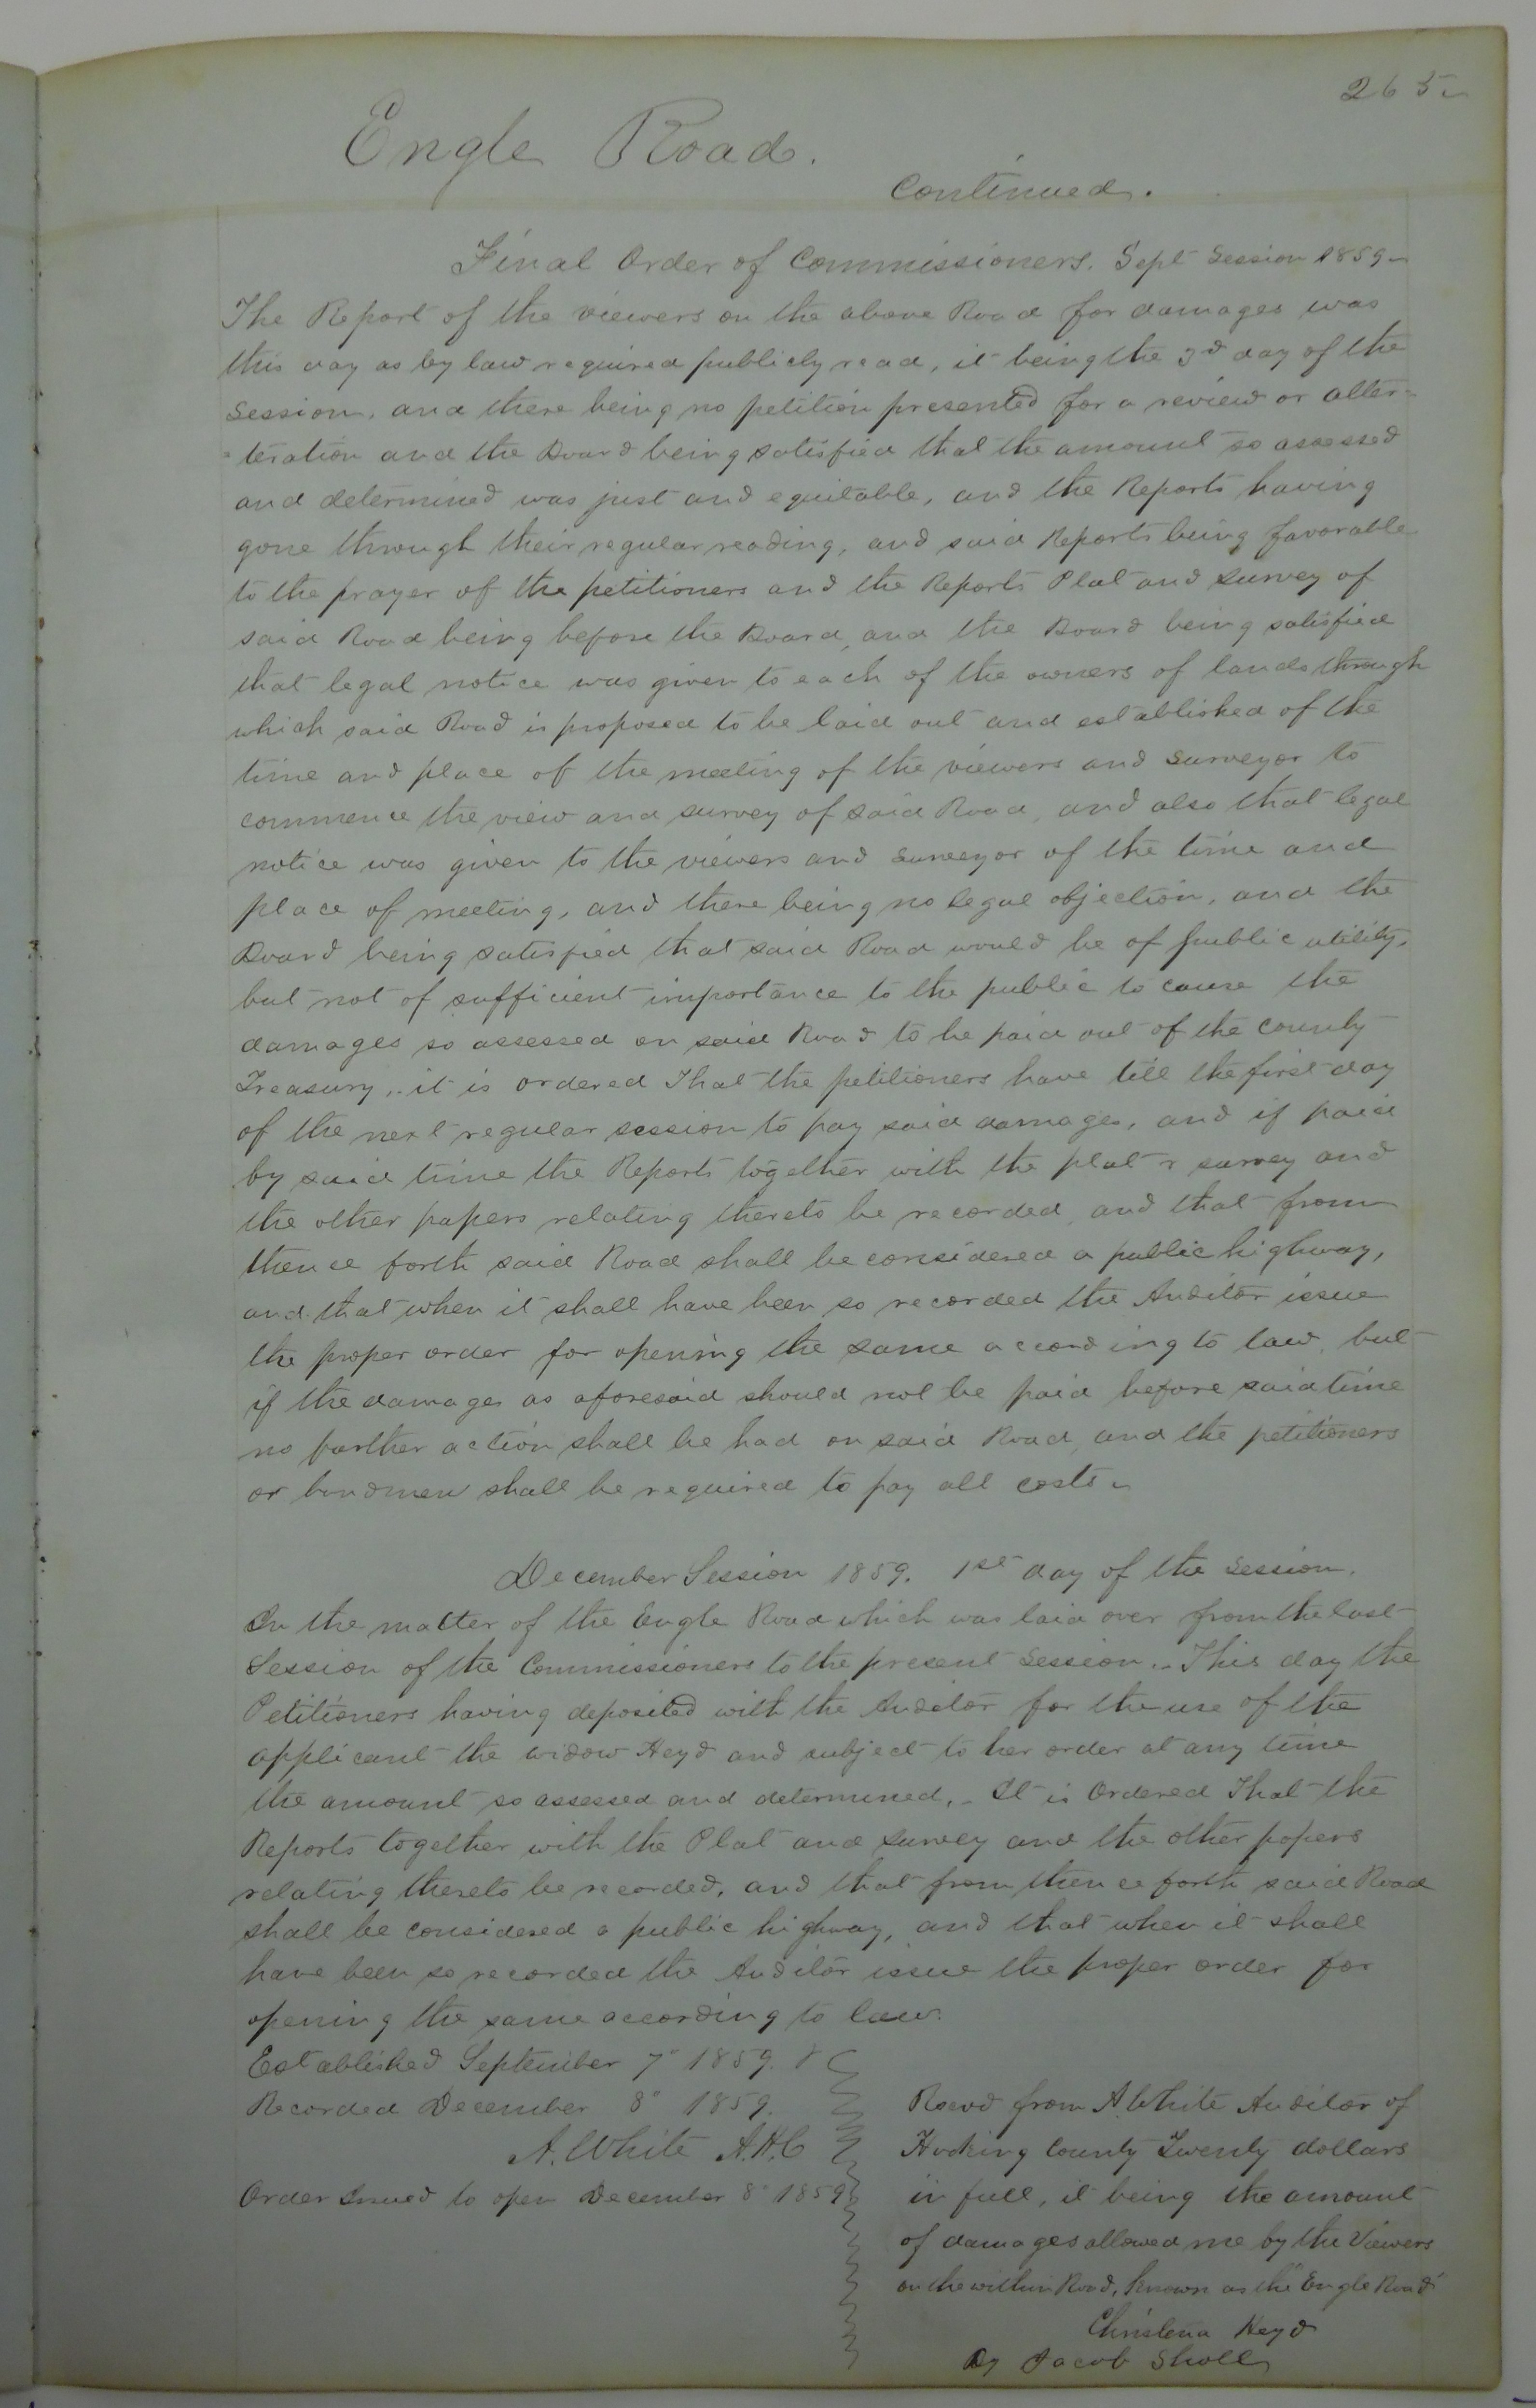 265
Engle Road.
Continued.
Final Order of Commissioners. Sept Session 1859
The Report of the viewers on the above Road for damages was
this day as by law required publicly read, it being the 3d day of the
Session. and there being no petition presented for a review or alter-
teration and the Board being satisfied that the amount so assessed
and determined was just and equitable, and the Reports having
gone through their regular reading, and said Reports being favorable
to the prayer of the petitioners and the Reports Plat and Survey of
said Road being before the Board, and the Board being satisfied
that legal notice was given to each of the owners of lands through
which said Road is proposed to be laid out and established of the
time and place of the meeting of the viewers and Surveyor to
commence the view and survey of said Road, and also that legal
notice was given to the viewers and Surveyor of the time and
place of meeting, and there being no legal objection, and the
Board being satisfied that said Road would be of public utility.
but not of sufficient importance to the public to cause the
damages so assessed on said Road to be paid out of the County
Treasury, it is ordered That the petitioners have till the first day
of the next regular session to pay said damages, and if paid
by said time the Reports together with the plat & survey and
the other papers relating thereto be recorded, and that from
thence forth said Road shall be considered a public highway,
and that when it shall have been so recorded the Auditor issue
the proper order for opening the same according to law. but
if the damages as aforesaid should not be paid before said time
no further action shall be had on said Road, and the petitioners
or bondmen shall be required to pay all costs
December Session 1859. 1st day of the Session.
In the matter of the Engle Road which was laid over from the last
Session of the Commissioners to the present Session. This day the
Petitioners having deposited with the Auditor for the use of the
applicant the widow Heyd and subject to her order at any time
the amount so assessed and determined. It is Ordered That the
Reports together with the Plat and Survey and the other papers
relating thereto be recorded, and that from thence forth said Road
shall be considered a public highway, and that when it shall
have been so recorded the Auditor issue the proper order for
opening the same according to law.
Established September 7" 1859.
Recorded December 8" 1859.
A. White A.H.C
Order Issued to open December 8" 1859
Recvd from A. White Auditor of
Hocking County Twenty dollars
in full, it being the amount
of damages allowed me by the Viewers
on the within Road, known as the "Engle Road"
Christena Heyd
By Jacob Sholl